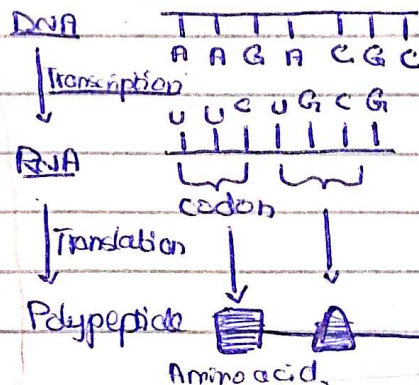 DNA
A A G A C G C
Transcription
U U C U G C G
RNA
codon
Translation
Polypeptide
Amino acid.